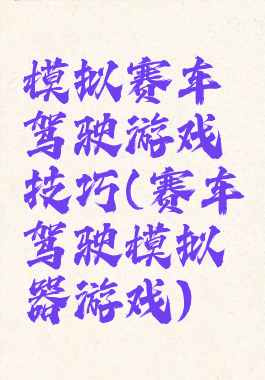 模拟赛车
驾驶游戏
技巧(赛车
驾驶模拟
器游戏)